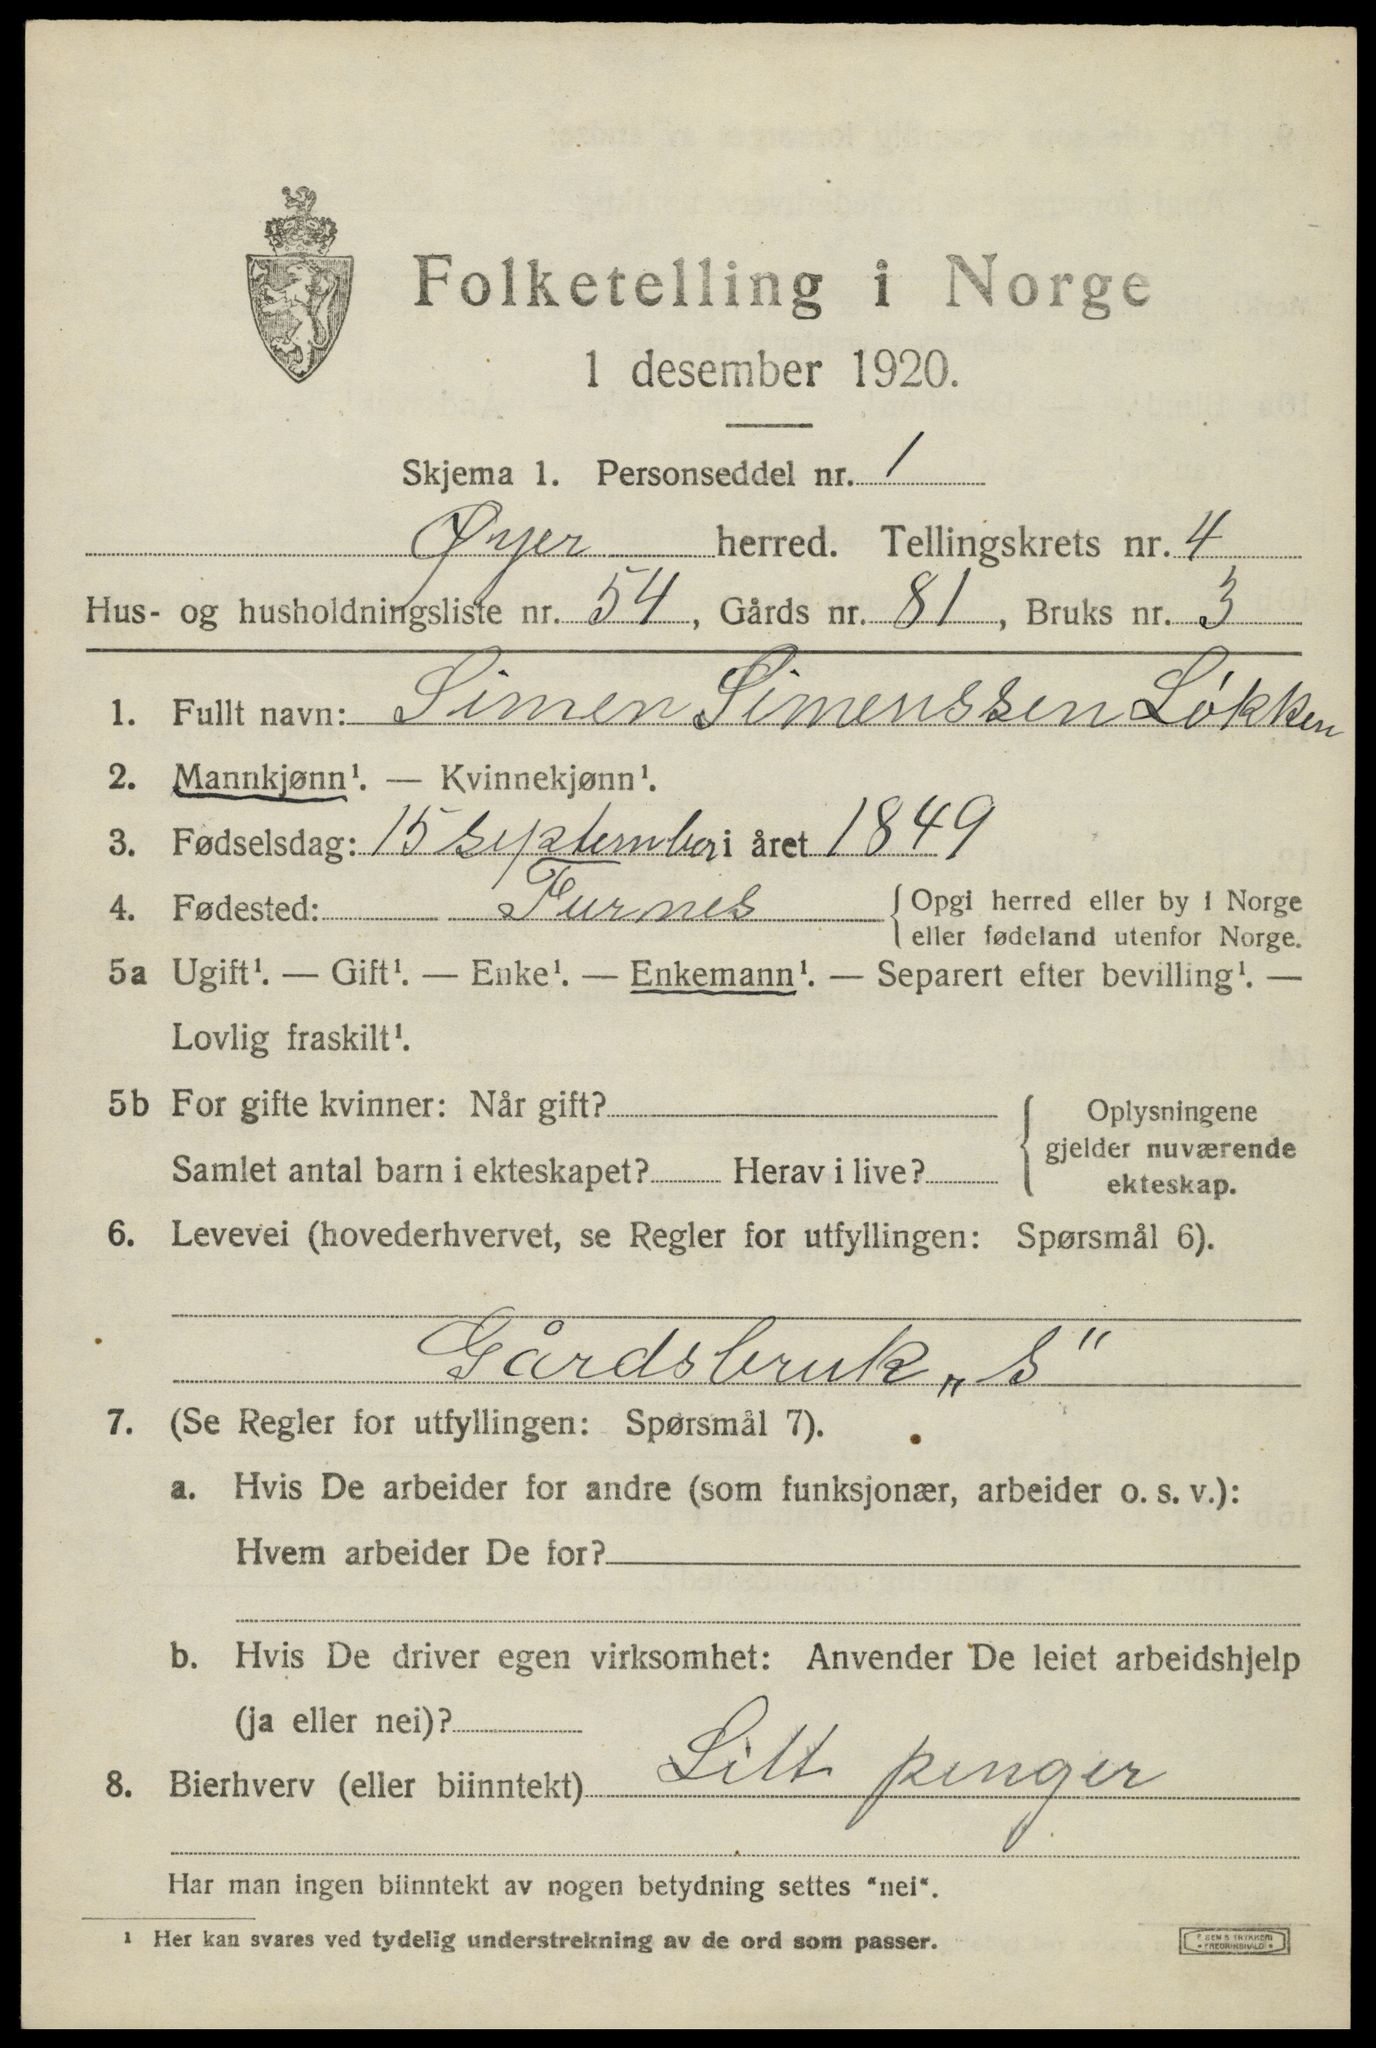 Folketelling i Norge
1 desember 1920.
Skjema 1. Personseddel nr. 1
Øyer herred. Tellingskrets nr. 4
Hus- og husholdningsliste nr. 54, Gårds nr. 81, Bruks nr. 3
1. Fullt navn: Simen Simenssen Løkken
2. Mannkjønn¹. — Kvinnekjønn¹.
3. Fødselsdag: 15 september i året 1849
4. Fødested: Furnes { Opgi herred eller by i Norge
eller fødeland utenfor Norge.
5a Ugift¹. — Gift¹. — Enke¹. — Enkemann¹. — Separert efter bevilling¹. —
Lovlig fraskilt¹.
5b For gifte kvinner: Når gift?
Samlet antal barn i ekteskapet? Herav i live?
{ Oplysningene
gjelder nuværende
ekteskap.
6. Levevei (hovederhvervet, se Regler for utfyllingen: Spørsmål 6).
Gårdsbruk „S“
7. (Se Regler for utfyllingen: Spørsmål 7).
a. Hvis De arbeider for andre (som funksjonær, arbeider o. s. v.):
Hvem arbeider De for?
b. Hvis De driver egen virksomhet: Anvender De leiet arbeidshjelp
(ja eller nei)?
8. Bierhverv (eller biinntekt) Litt penger
Har man ingen biinntekt av nogen betydning settes "nei".
¹ Her kan svares ved tydelig understrekning av de ord som passer.